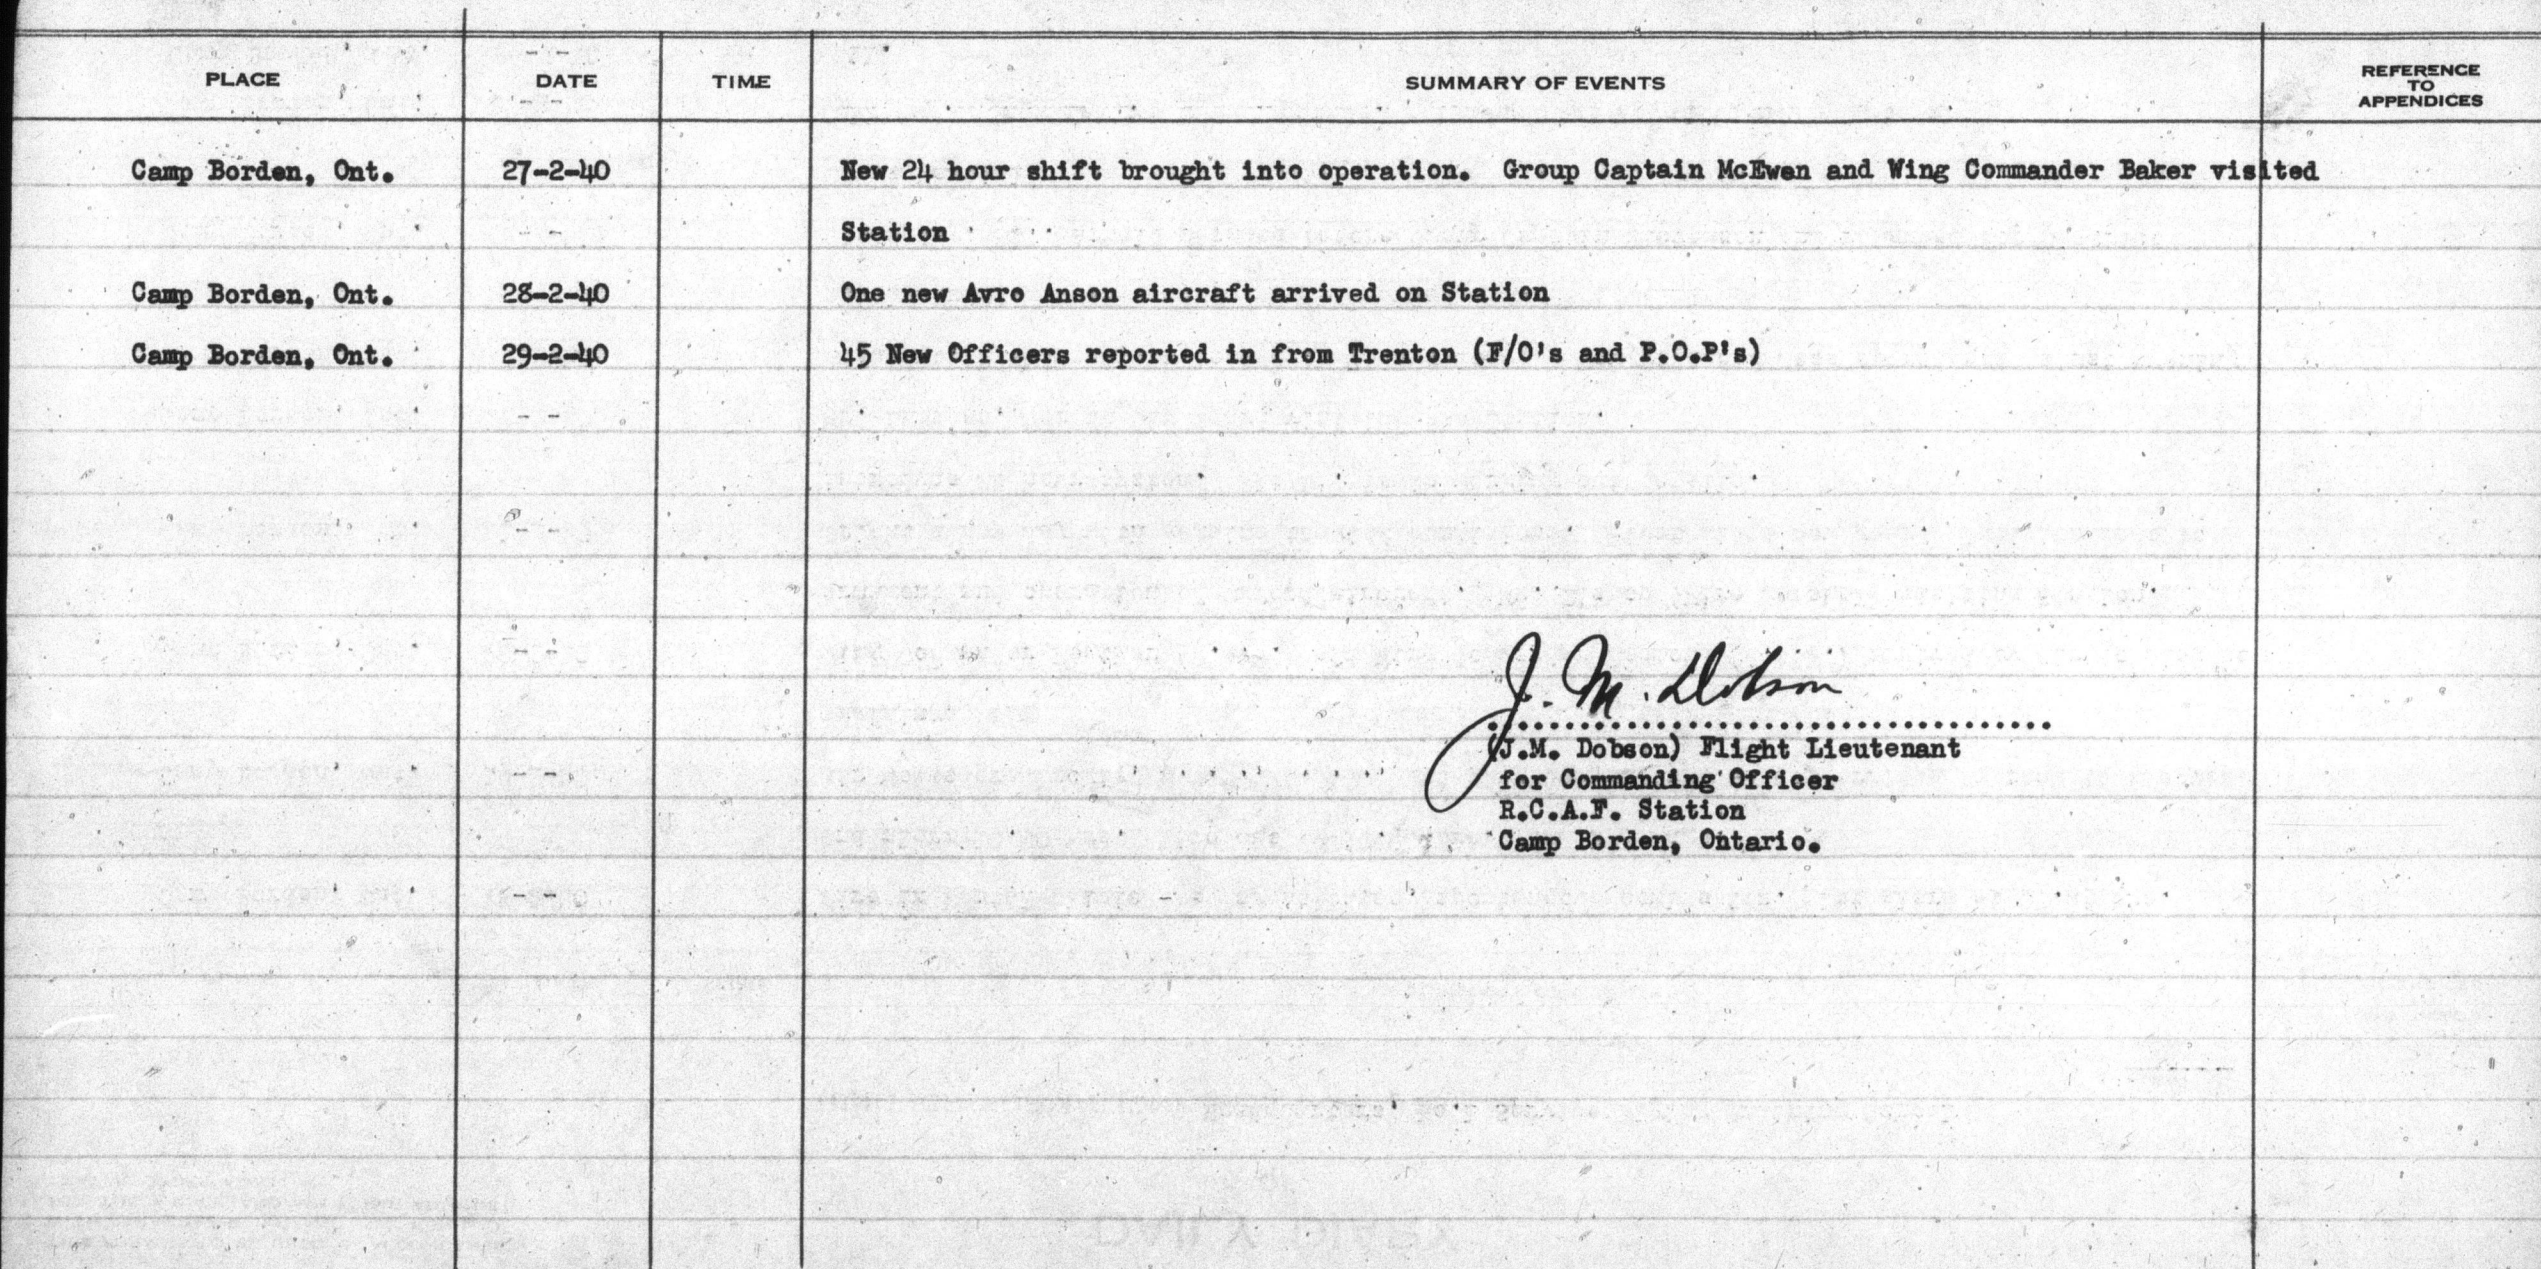 PLACE DATE TIME SUMMARY OF EVENTS REFERENCE TO APPENDICES
Camp Borden, Ont. 27-2-40 New 24 hour shift brought into operation. Group Captain McEwen and Wing Commander Baker visited
Station
Camp Borden, Ont. 28-2-40 One new Avro Anson aircraft arrived on Station
Camp Borden, Ont. 29-2-40 45 New Officers reported in from Trenton (F/O's and P.O.P's)
J. M. Dobson
(J.M. Dobson) Flight Lieutenant
for Commanding Officer
R.C.A.F. Station
Camp Borden, Ontario.